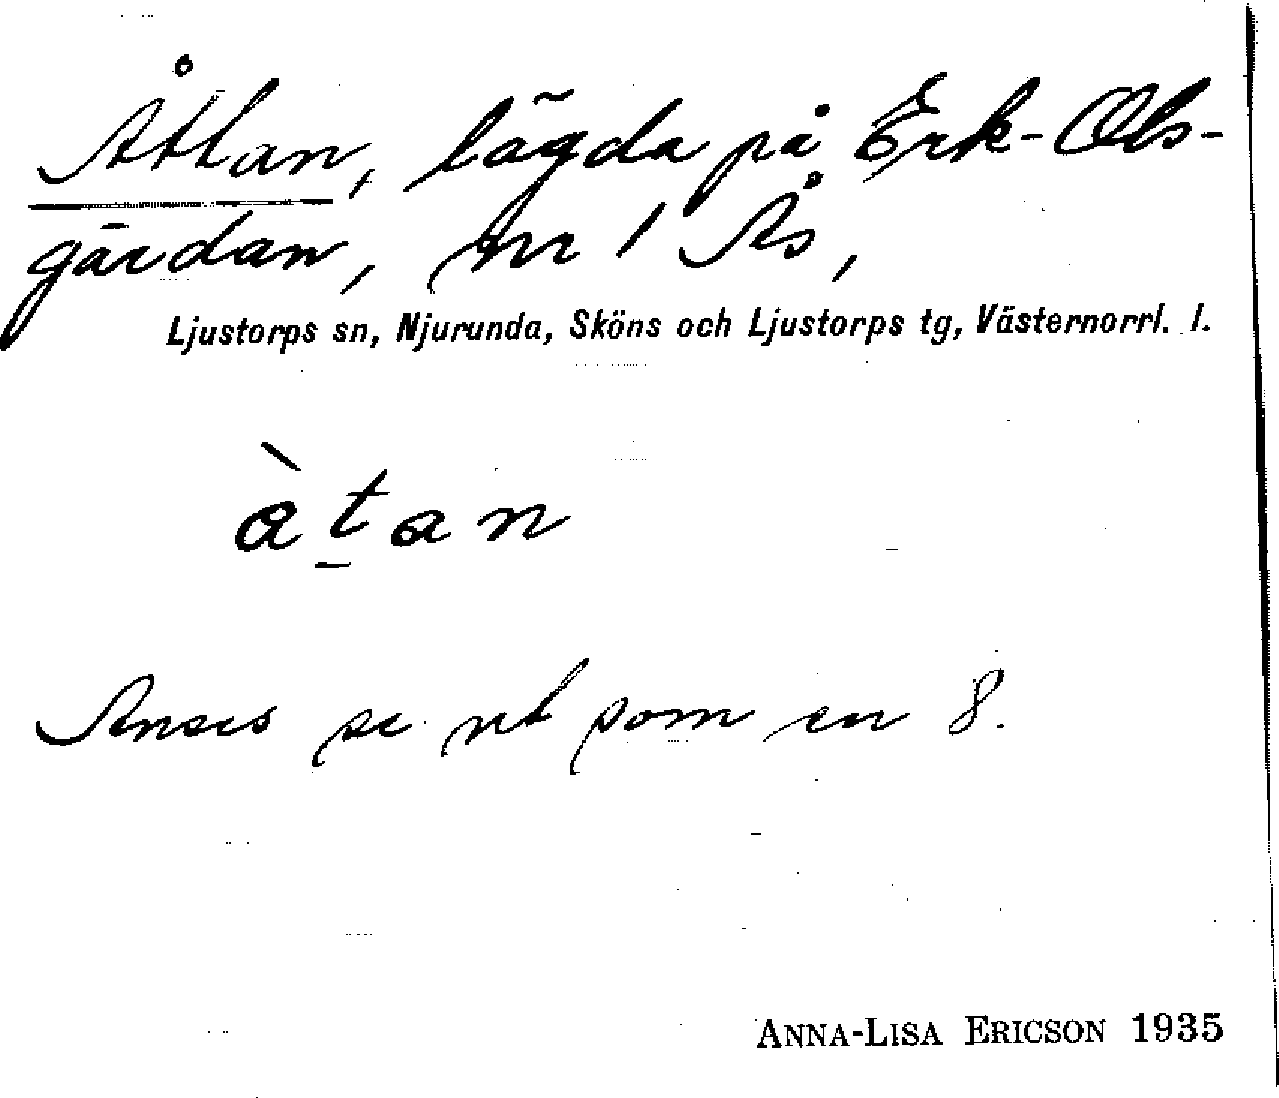 Åttan, lägda på Erk-Ols-
gårdan, nr 1 Ås,
Ljustorps sn, Njurunda, Sköns och Ljustorps tg, Västernorrl. l.
àtan
Anses se ut som en 8.
ANNA-LISA ERICSON 1935